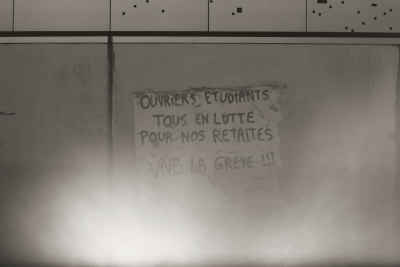 OUVRIERS ETUDIANTS
TOUS EN LUTTE
POUR NOS RETAITES
VIVE LA GREVE !!!